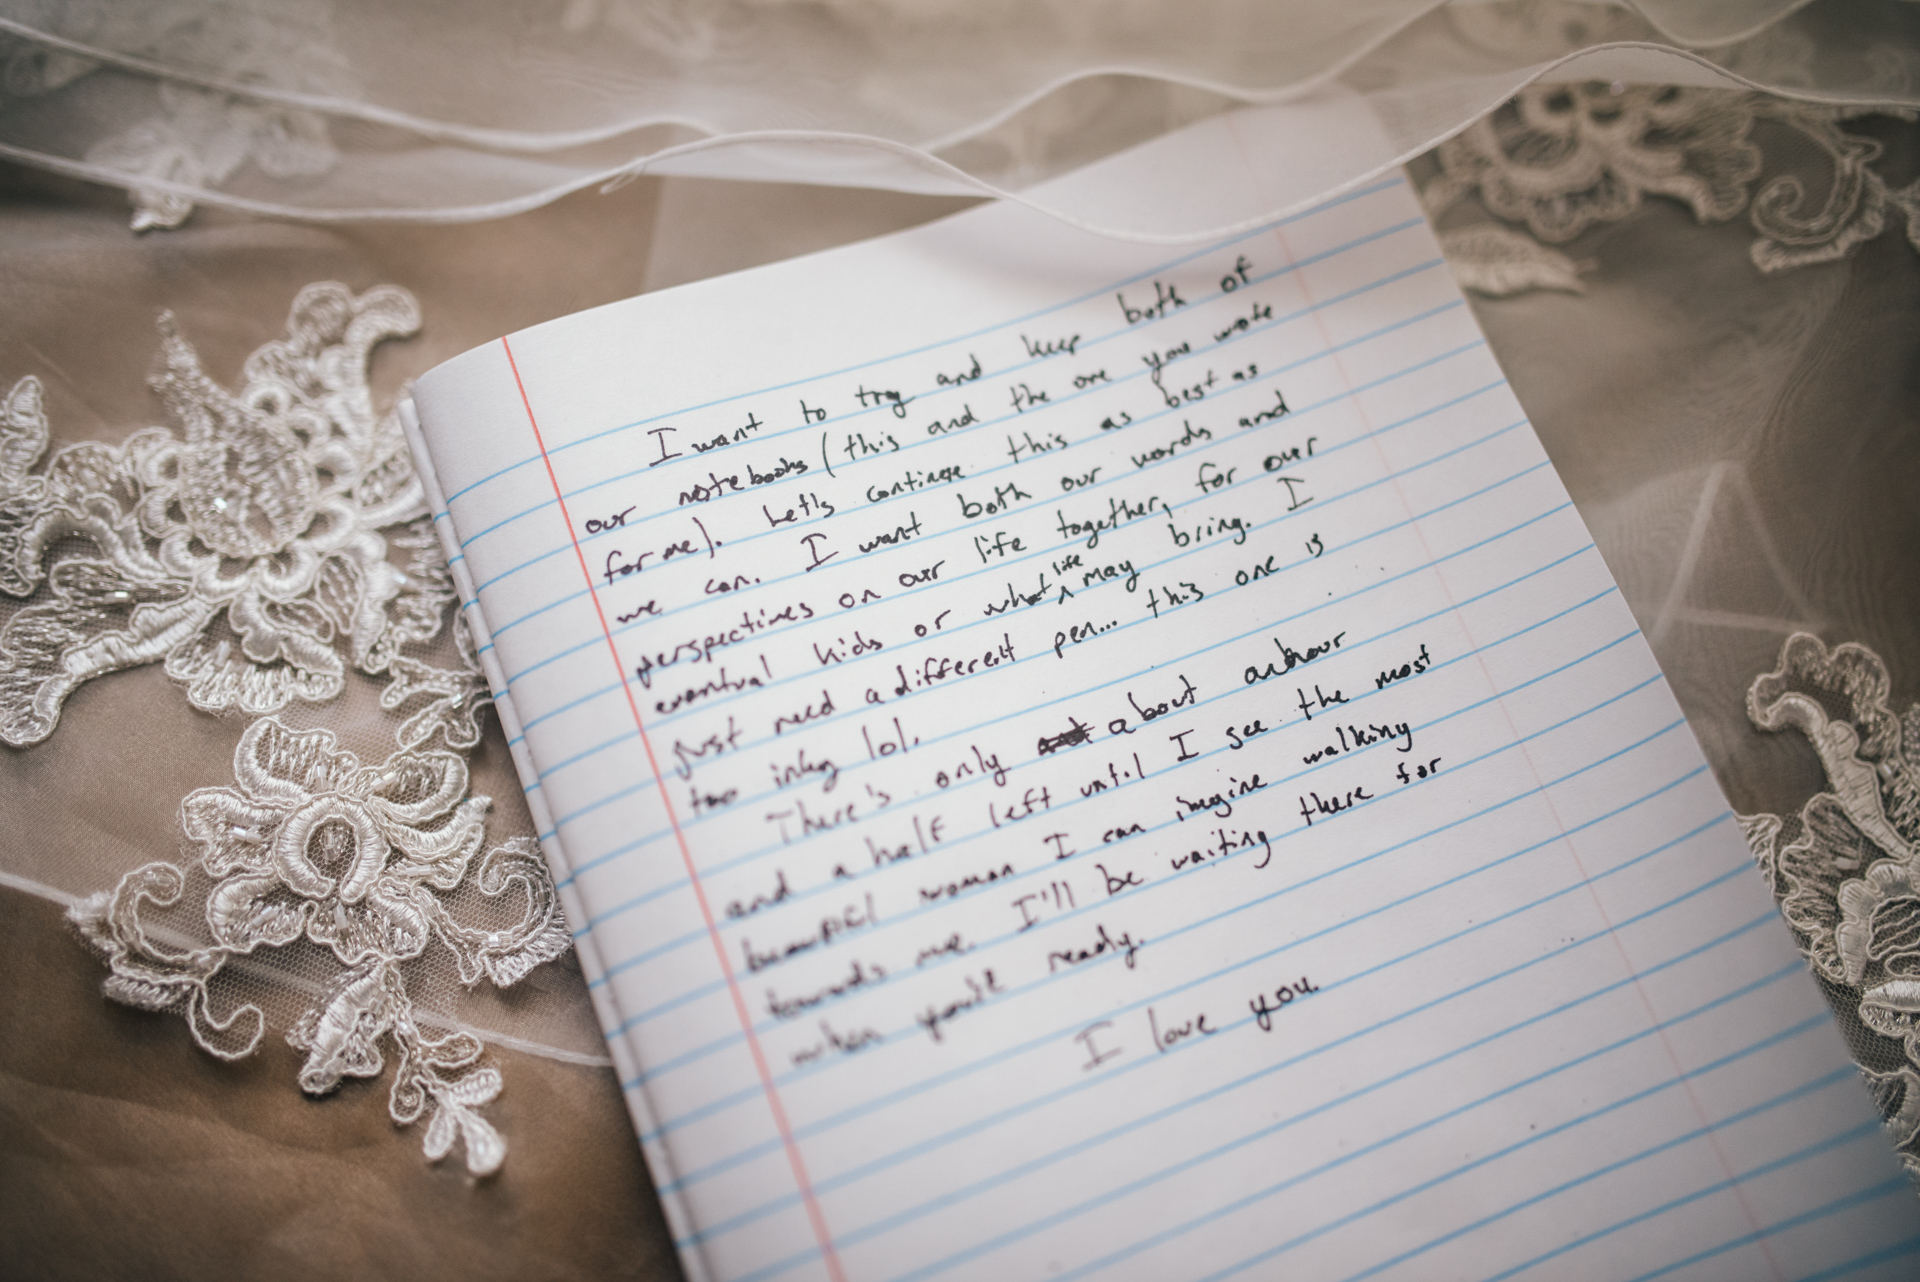 I want to try and keep both of
our notebooks (this and the one you wrote
for me). Let's continue this as best as
we can. I want both our words and
perspectives on our life together, for our
eventual kids or what life may bring. I
just need a different pen... this one is
too inky lol.
There's only about an hour
and a half left until I see the most
beautiful woman I can imgine walking
towards me. I'll be waiting there for
when you're ready.
I love you.